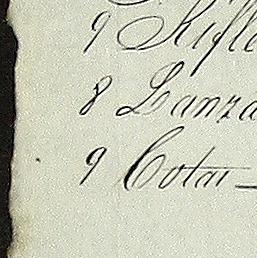 9 Rifle
8 Lanza
9 Cotai